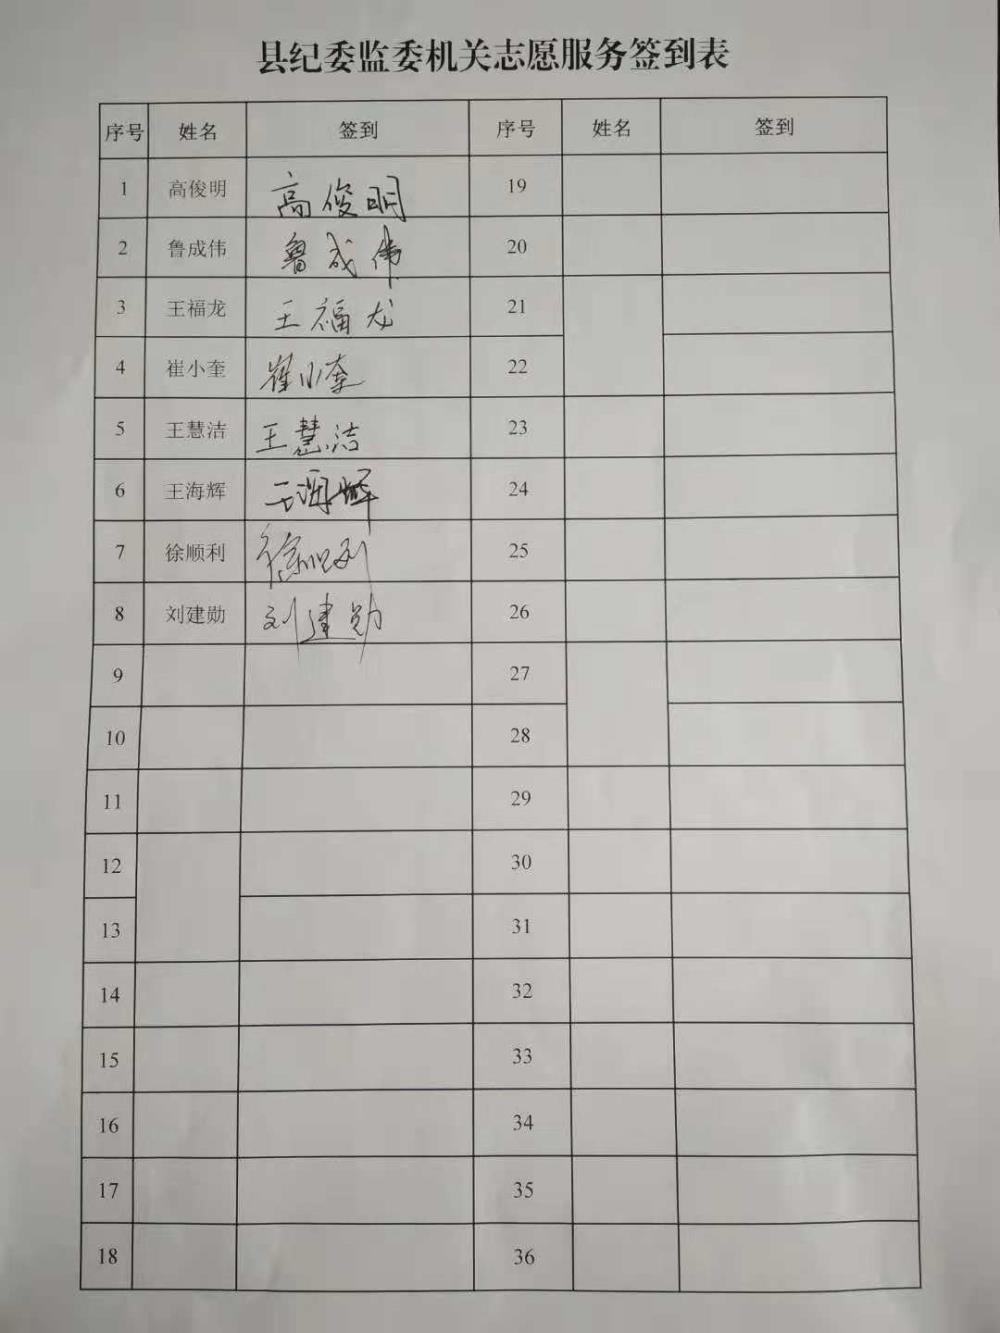 县纪委监委机关志愿服务签到表
序号 姓名 签到 序号 姓名 签到
1 高俊明 高俊明 19
2 鲁成伟 鲁成伟 20
3 王福龙 王福龙 21
4 崔小奎 崔小奎 22
5 王慧洁 王慧洁 23
6 王海辉 王海辉 24
7 徐顺利 徐顺利 25
8 刘建勋 刘建勋 26
9 27
10 28
11 29
12 30
13 31
14 32
15 33
16 34
17 35
18 36